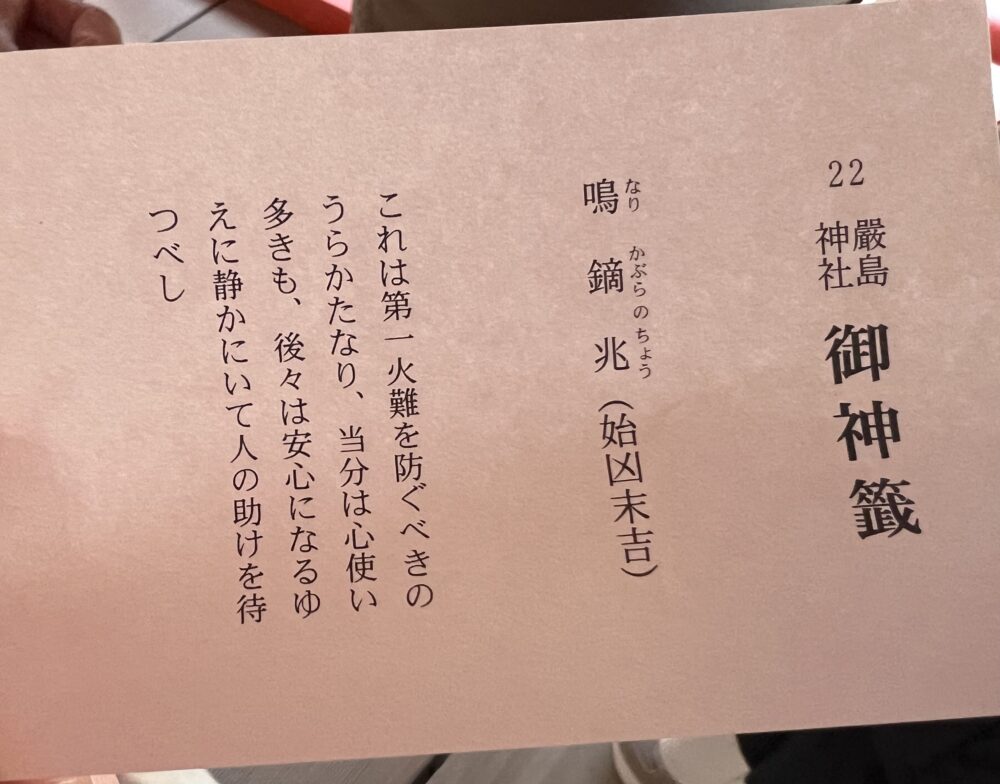 22 嚴島神社 御神籤
鳴鏑兆（始凶末吉）
なり かぶら の ちょう
これは第一火難を防ぐべきの
うらかたなり、当分は心使い
多きも、後々は安心になるゆ
えに静かにいて人の助けを待
つべし